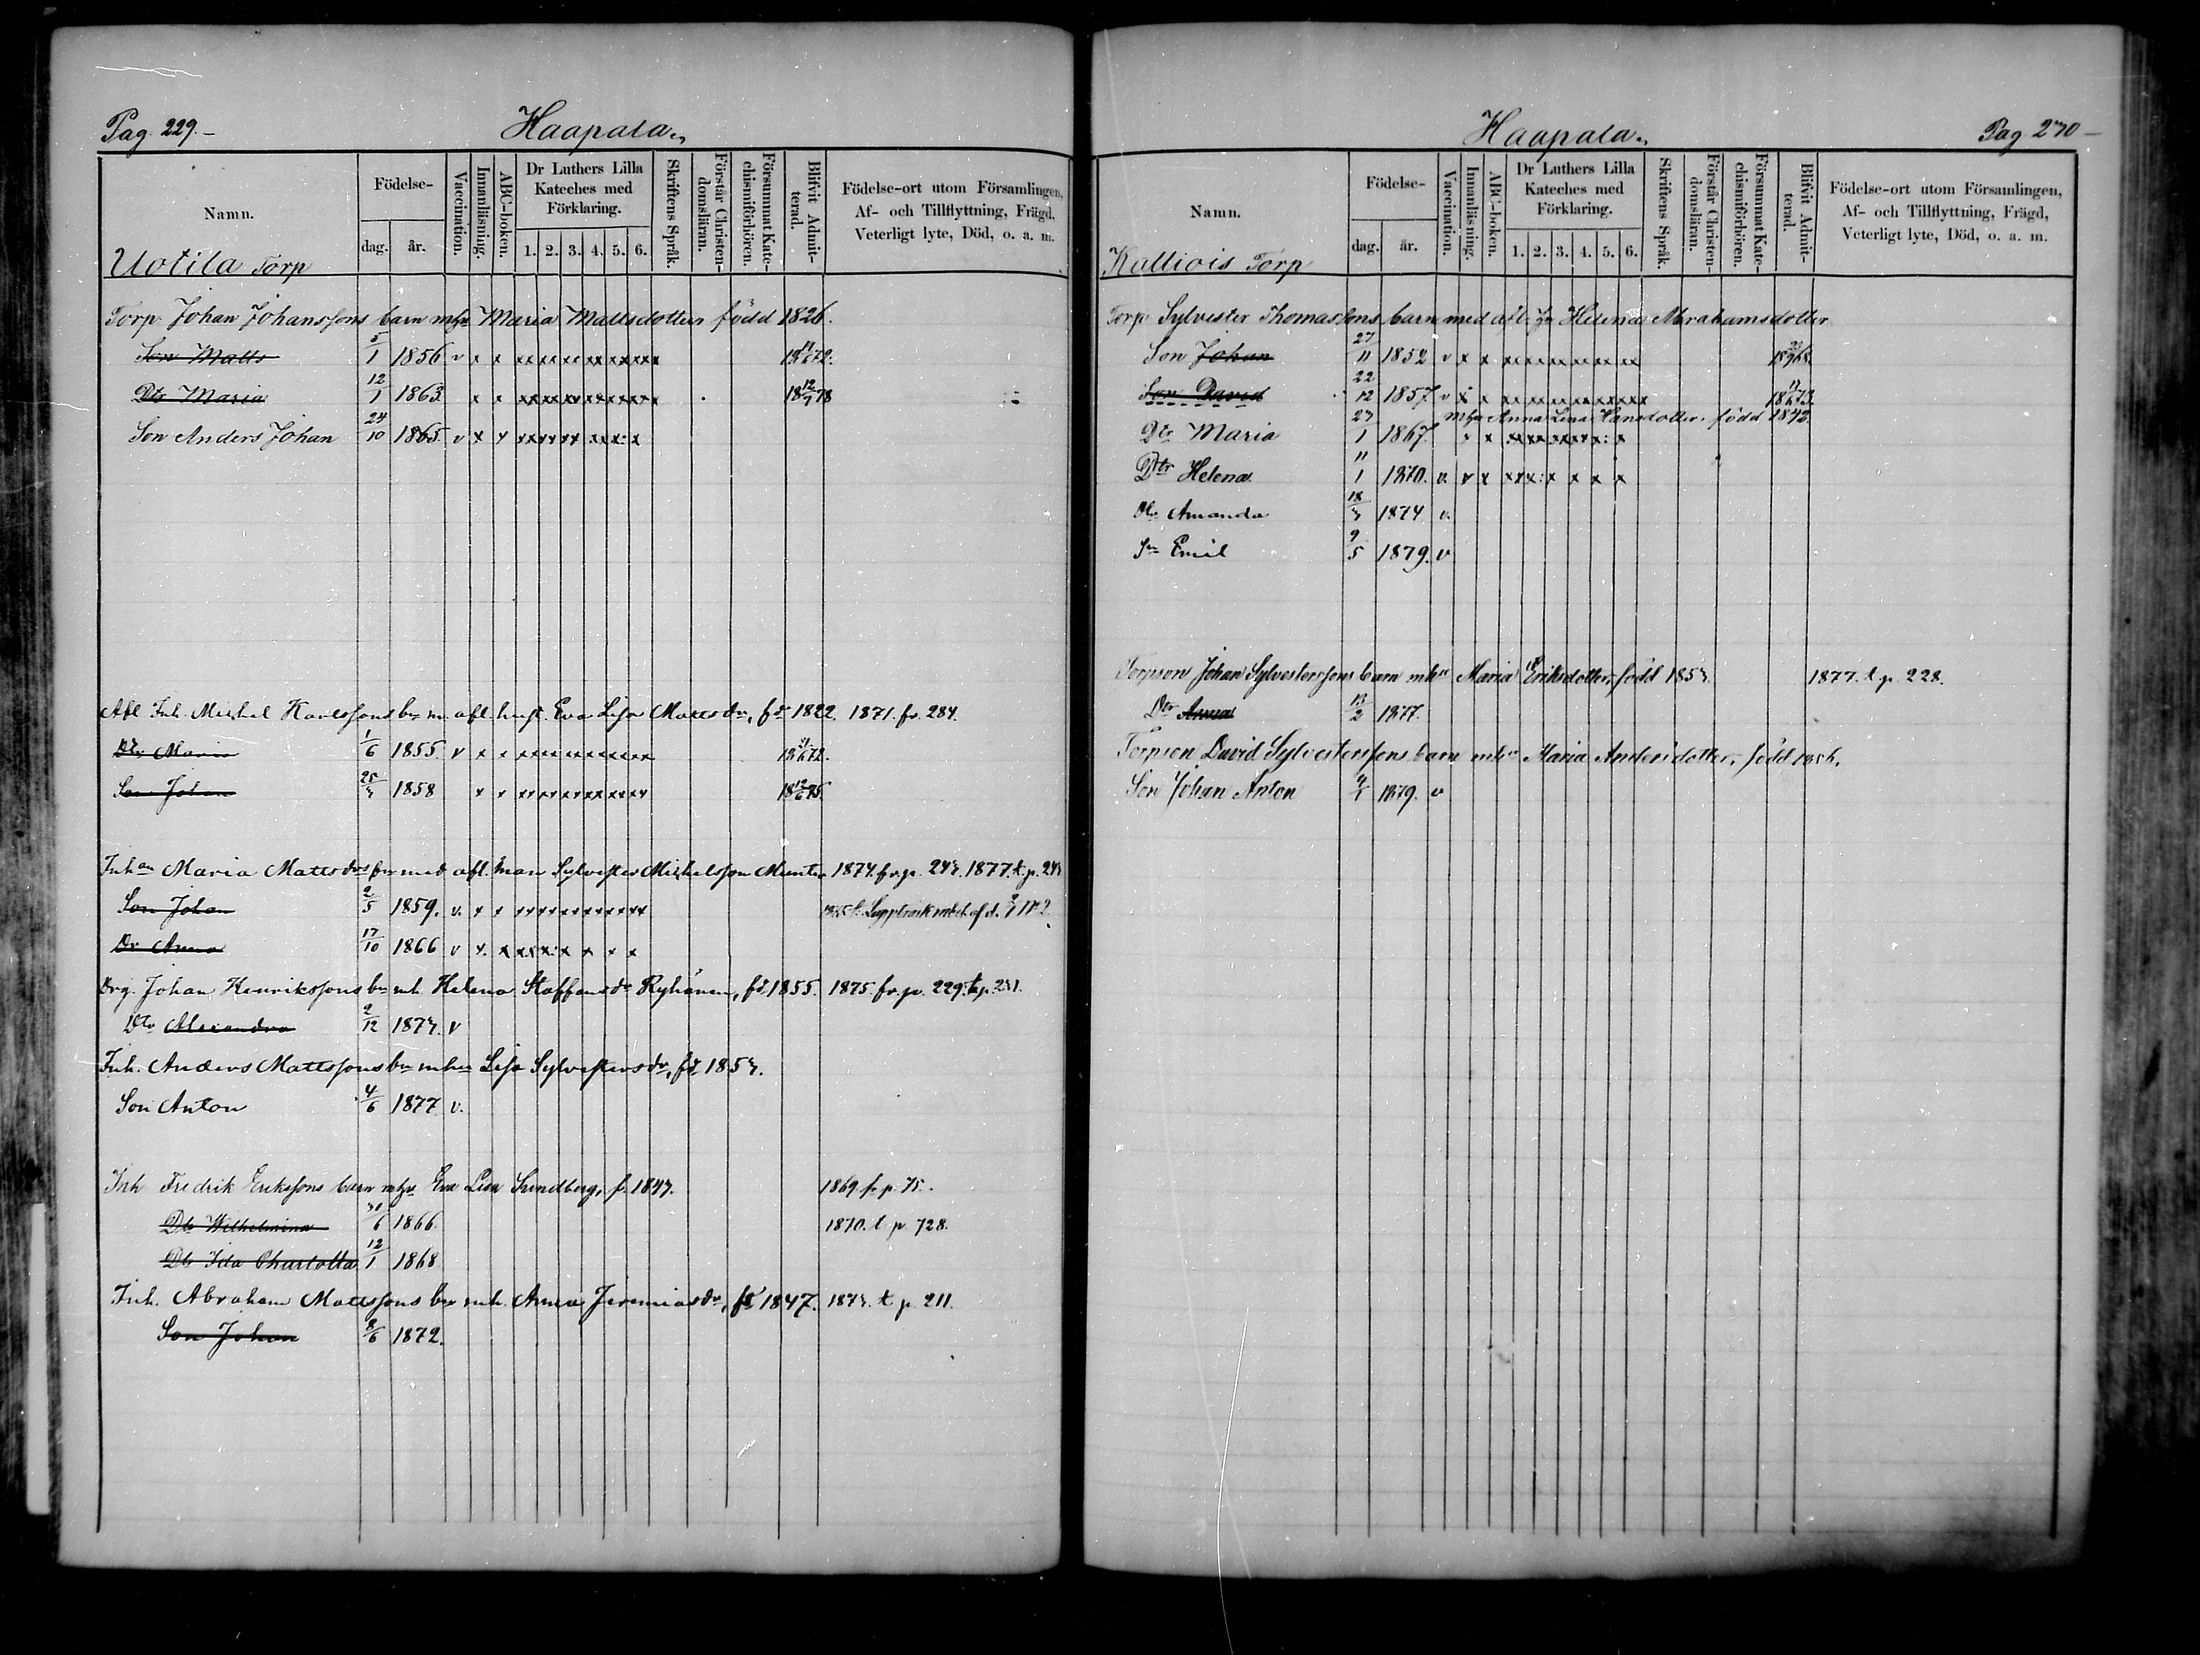 Pag. 229.
Haapala.
Namn.
Födelse-
dag.
år.
Vaccination.
Innanläsning.
ABC-boken.
Dr Luthers Lilla Kateches med Förklaring.
1. 2. 3. 4. 5. 6.
Skriftens Språk.
Förstår Christendomsläran.
Försummat Katechismiförhören.
Blifvit Admitterad.
Födelse-ort utom Församlingen,
Af- och Tillflyttning, Frägd,
Veterligt lyte, Död, o. a. m.
Uotila Torp
Torp. Johan Johanssons barn mhu Maria Mattsdotter född 1826.
Son Matts 5/1 1856 v x x xx xx xx xx xx xx
Dtr Maria 12/1 1863 x x xx xx xx xx xx xx
Son Anders Johan 24/10 1865. v x x
Afl. Inh. Michel Karlssons bn m. afl. hust. Eva Lisa Mattsdr, fd 1822. 1871. fr. 284.
Dtr Maria 1/6 1855. v x x
Son Johan 1858 x x
Inhan Maria Mattsdrs bn med afl. man Sylvester Michelsson Munter 1874. fr. p. 243. 1877. t. p. 243
Son Johan 2/5 1859. v. x x
Dr Anna 17/10 1866 v x. x
Drg. Johan Henrikssons bn mh. Helena Staffansdr Ryhänen, fd. 1855. 1875. fr. p. 229. t. p. 231.
Dtr Alexandra 2/12 1873. v
Inh. Anders Mattssons bn mhu Lisa Sylvestersdr, fd. 1853.
Son Anton 4/6 1877 v.
Inh Fredrik Erikssons barn mhu Eva Lisa Sundberg, f. 1843. 1869 fr p. 75.
Dtr Wilhelmina 1866. 1870. t p. 728.
Dtr Ida Charlotta 12/1 1868
Inh. Abraham Mattssons bn mh. Anna Jeremiasdr, fd 1847. 1873. t. p. 211.
Son Johan 8/6 1872.
Haapala.
Pag. 230
Namn.
Födelse-
dag.
år.
Vaccination.
Innanläsning.
ABC-boken.
Dr Luthers Lilla Kateches med Förklaring.
1. 2. 3. 4. 5. 6.
Skriftens Språk.
Förstår Christendomsläran.
Försummat Katechismiförhören.
Blifvit Admitterad.
Födelse-ort utom Församlingen,
Af- och Tillflyttning, Frägd,
Veterligt lyte, Död, o. a. m.
Kalliois Torp
Torp. Sylvester Thomassons barn med afl. hu Helena Abrahamsdotter
Son Johan 27/11 1852 v x x
Son David 22/12 1857 v x x
mhu Anna Lena Hansdotter född 1842.
Dtr Maria 23/1 1867. x x
Dtr Helena 11/1 1870. v. x x
Dtr Amanda 18/3 1874 v.
Sn Emil 9/5 1879. v
Torpson Johan Sylvesterssons barn mhu Maria Eriksdotter, född 1853. 1877. t. p. 228.
Dtr Anna 13/2 1877.
Torpson David Sylvesterssons barn mhu Maria Andersdotter, född 1856.
Son Johan Anton 4/1 1879. v